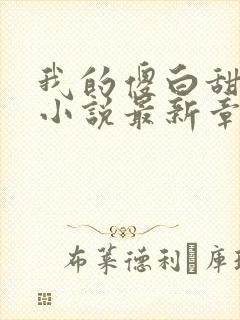 我的傻白甜
小说最新章
布莱德利·库珀